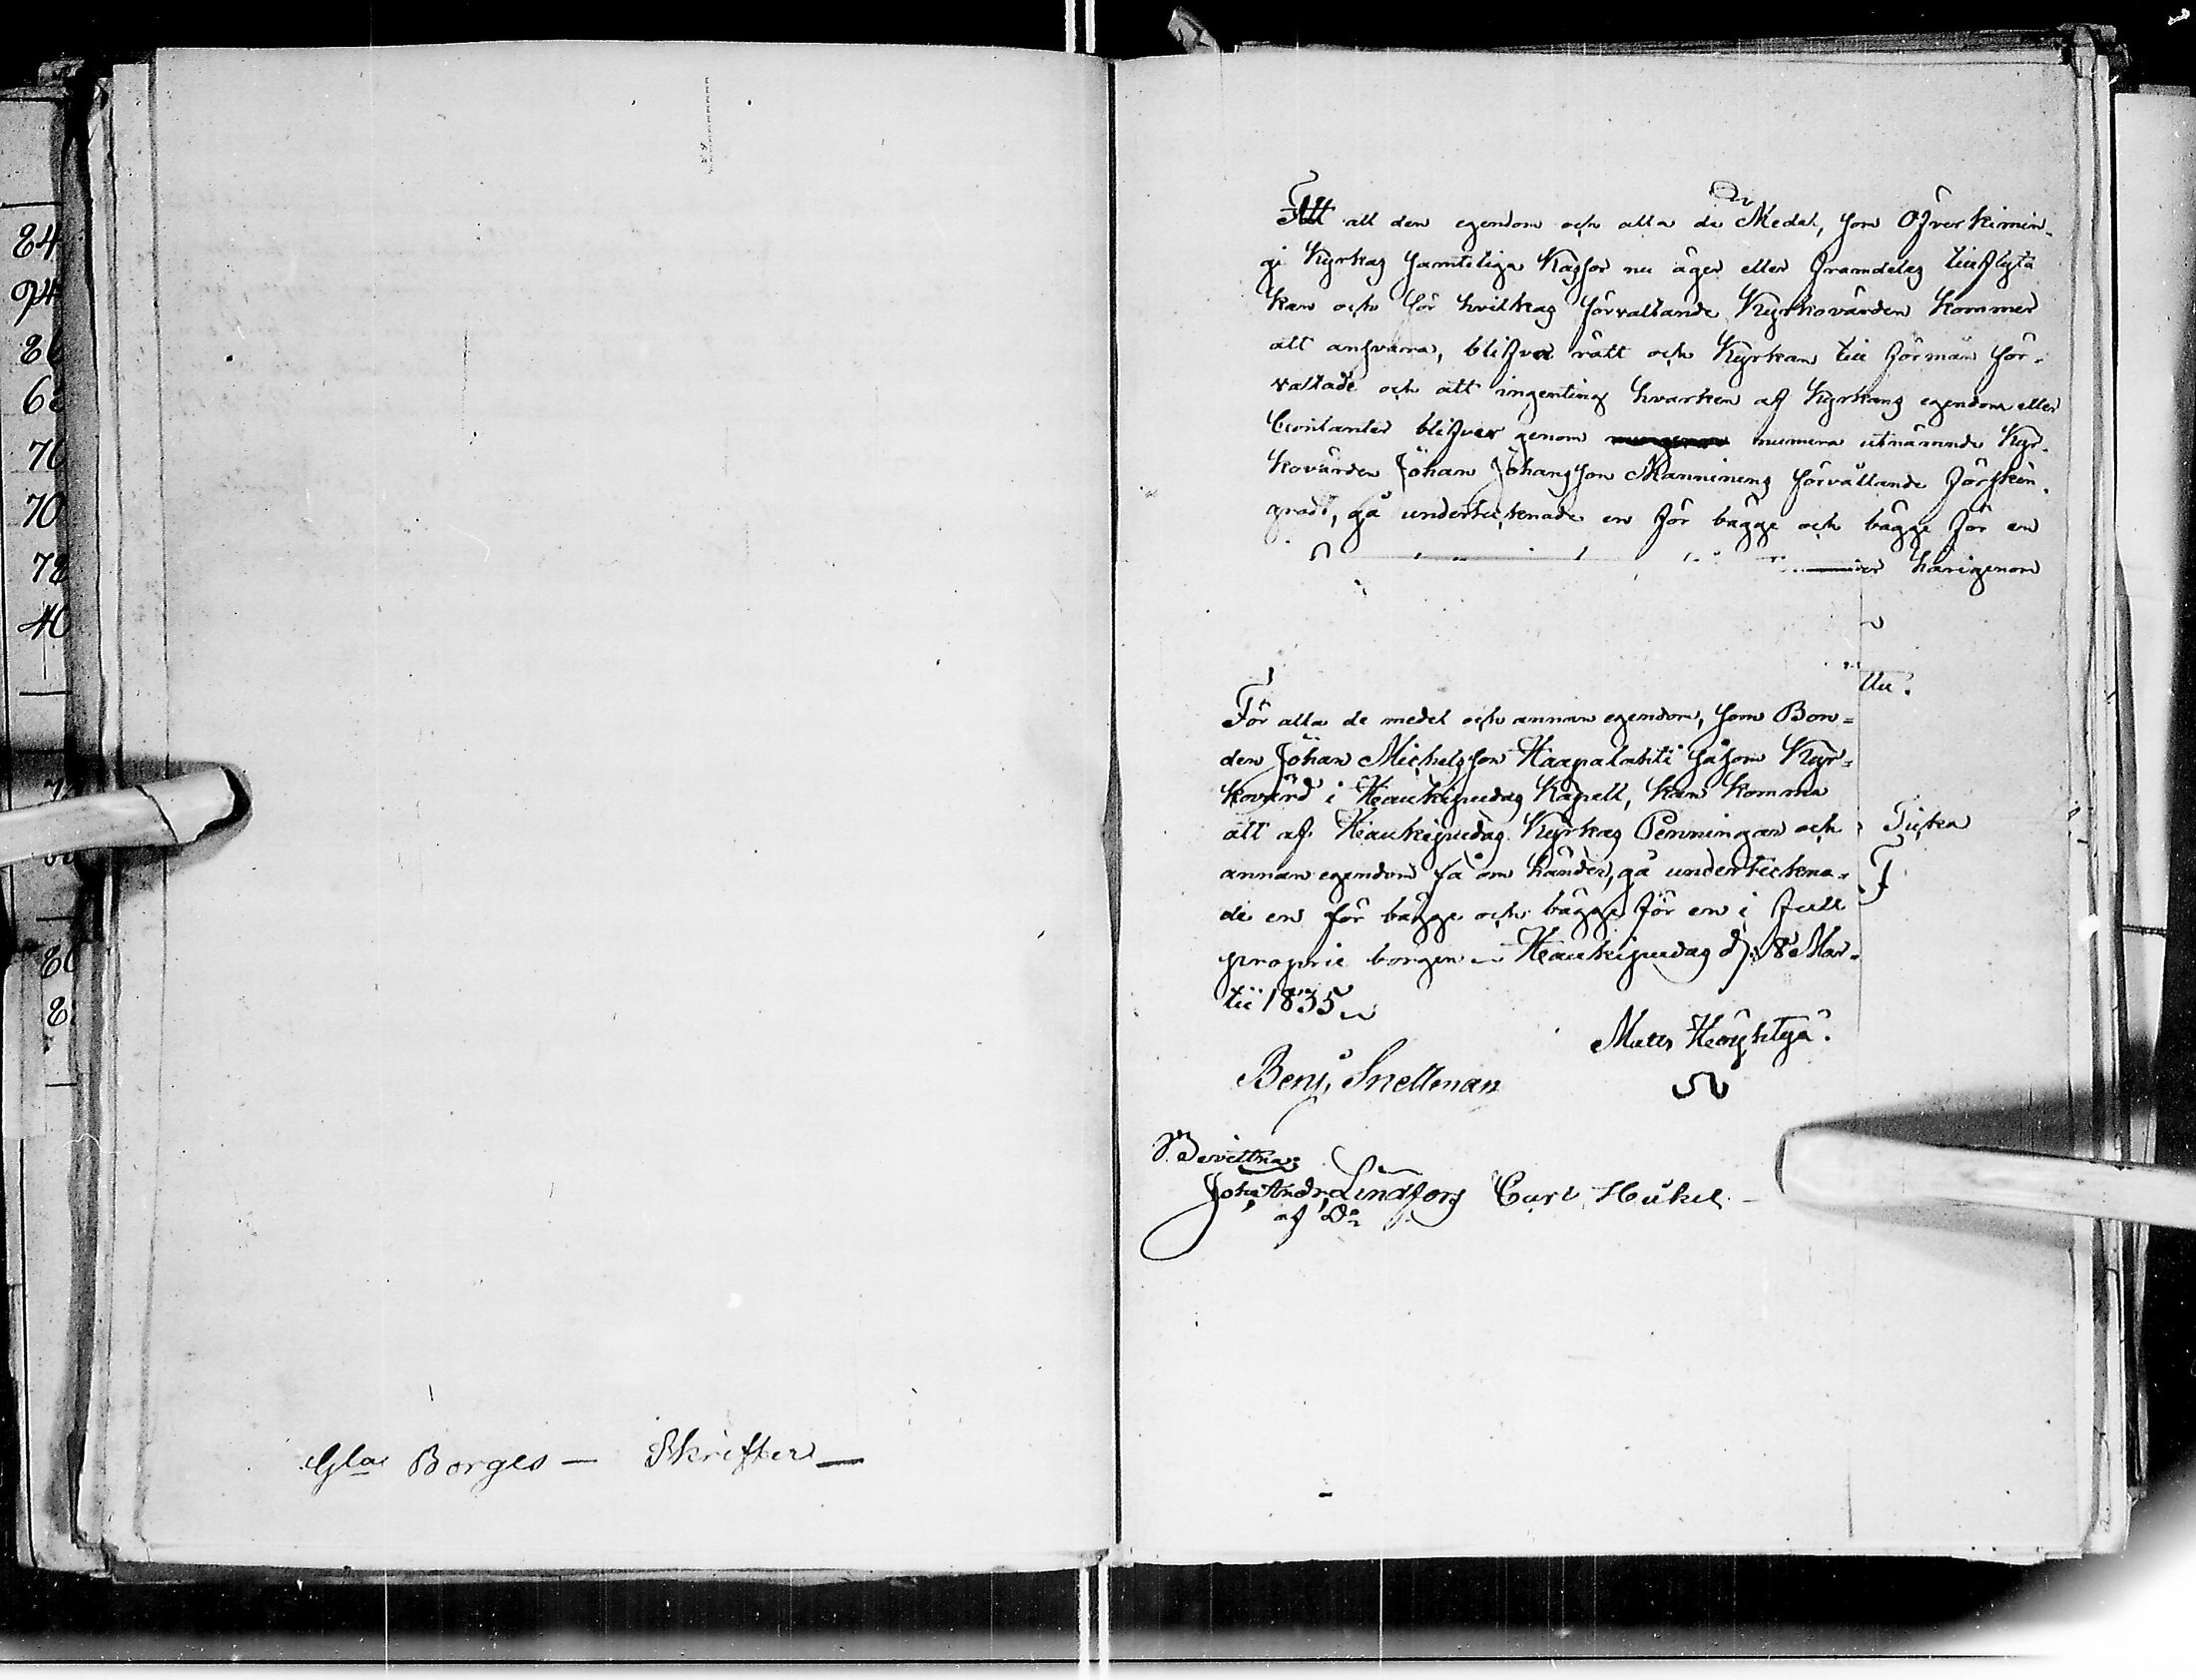 84
94
86
70
70
78
40
80
8
Gla Borges — Skrifter —
Att all den egendom och alla de Medel, som Öfverkimin-
gi Kyrkas samteliga Kassor nu äger eller framdeles tillflyta
kan och för hvilkas förvaltande Kyrkovärden kommer
att ansvara, blifva rätt och Kyrkan till förmån för-
valtade och att ingenting hvarken af Kyrkans egendom eller
Contanter blifver genom numera utnämnde Kyr-
kovärden Johan Johansson Manninens förvållande förskin-
gradt, gå undertecknade en för bägge och bägge för en
härigenom
För alla de medel och annan egendom, som Bon=
den Johan Michelsson Haapalahti såsom Kyr=
kovärd i Haukipudas Kapell, kan komma
att af Haukipudas Kyrkas Penningar och
annan egendom få om händer, gå underteckna-
de en för bägge och bägge för en i full
proprie borgen — Haukipudas d. 8 Mar-
tii 1835
Matts Heryhtyä.
Benj. Snellman
Bevittna:
Joh. Andr. Lindfors Carl Hukel
af Do
Tiska